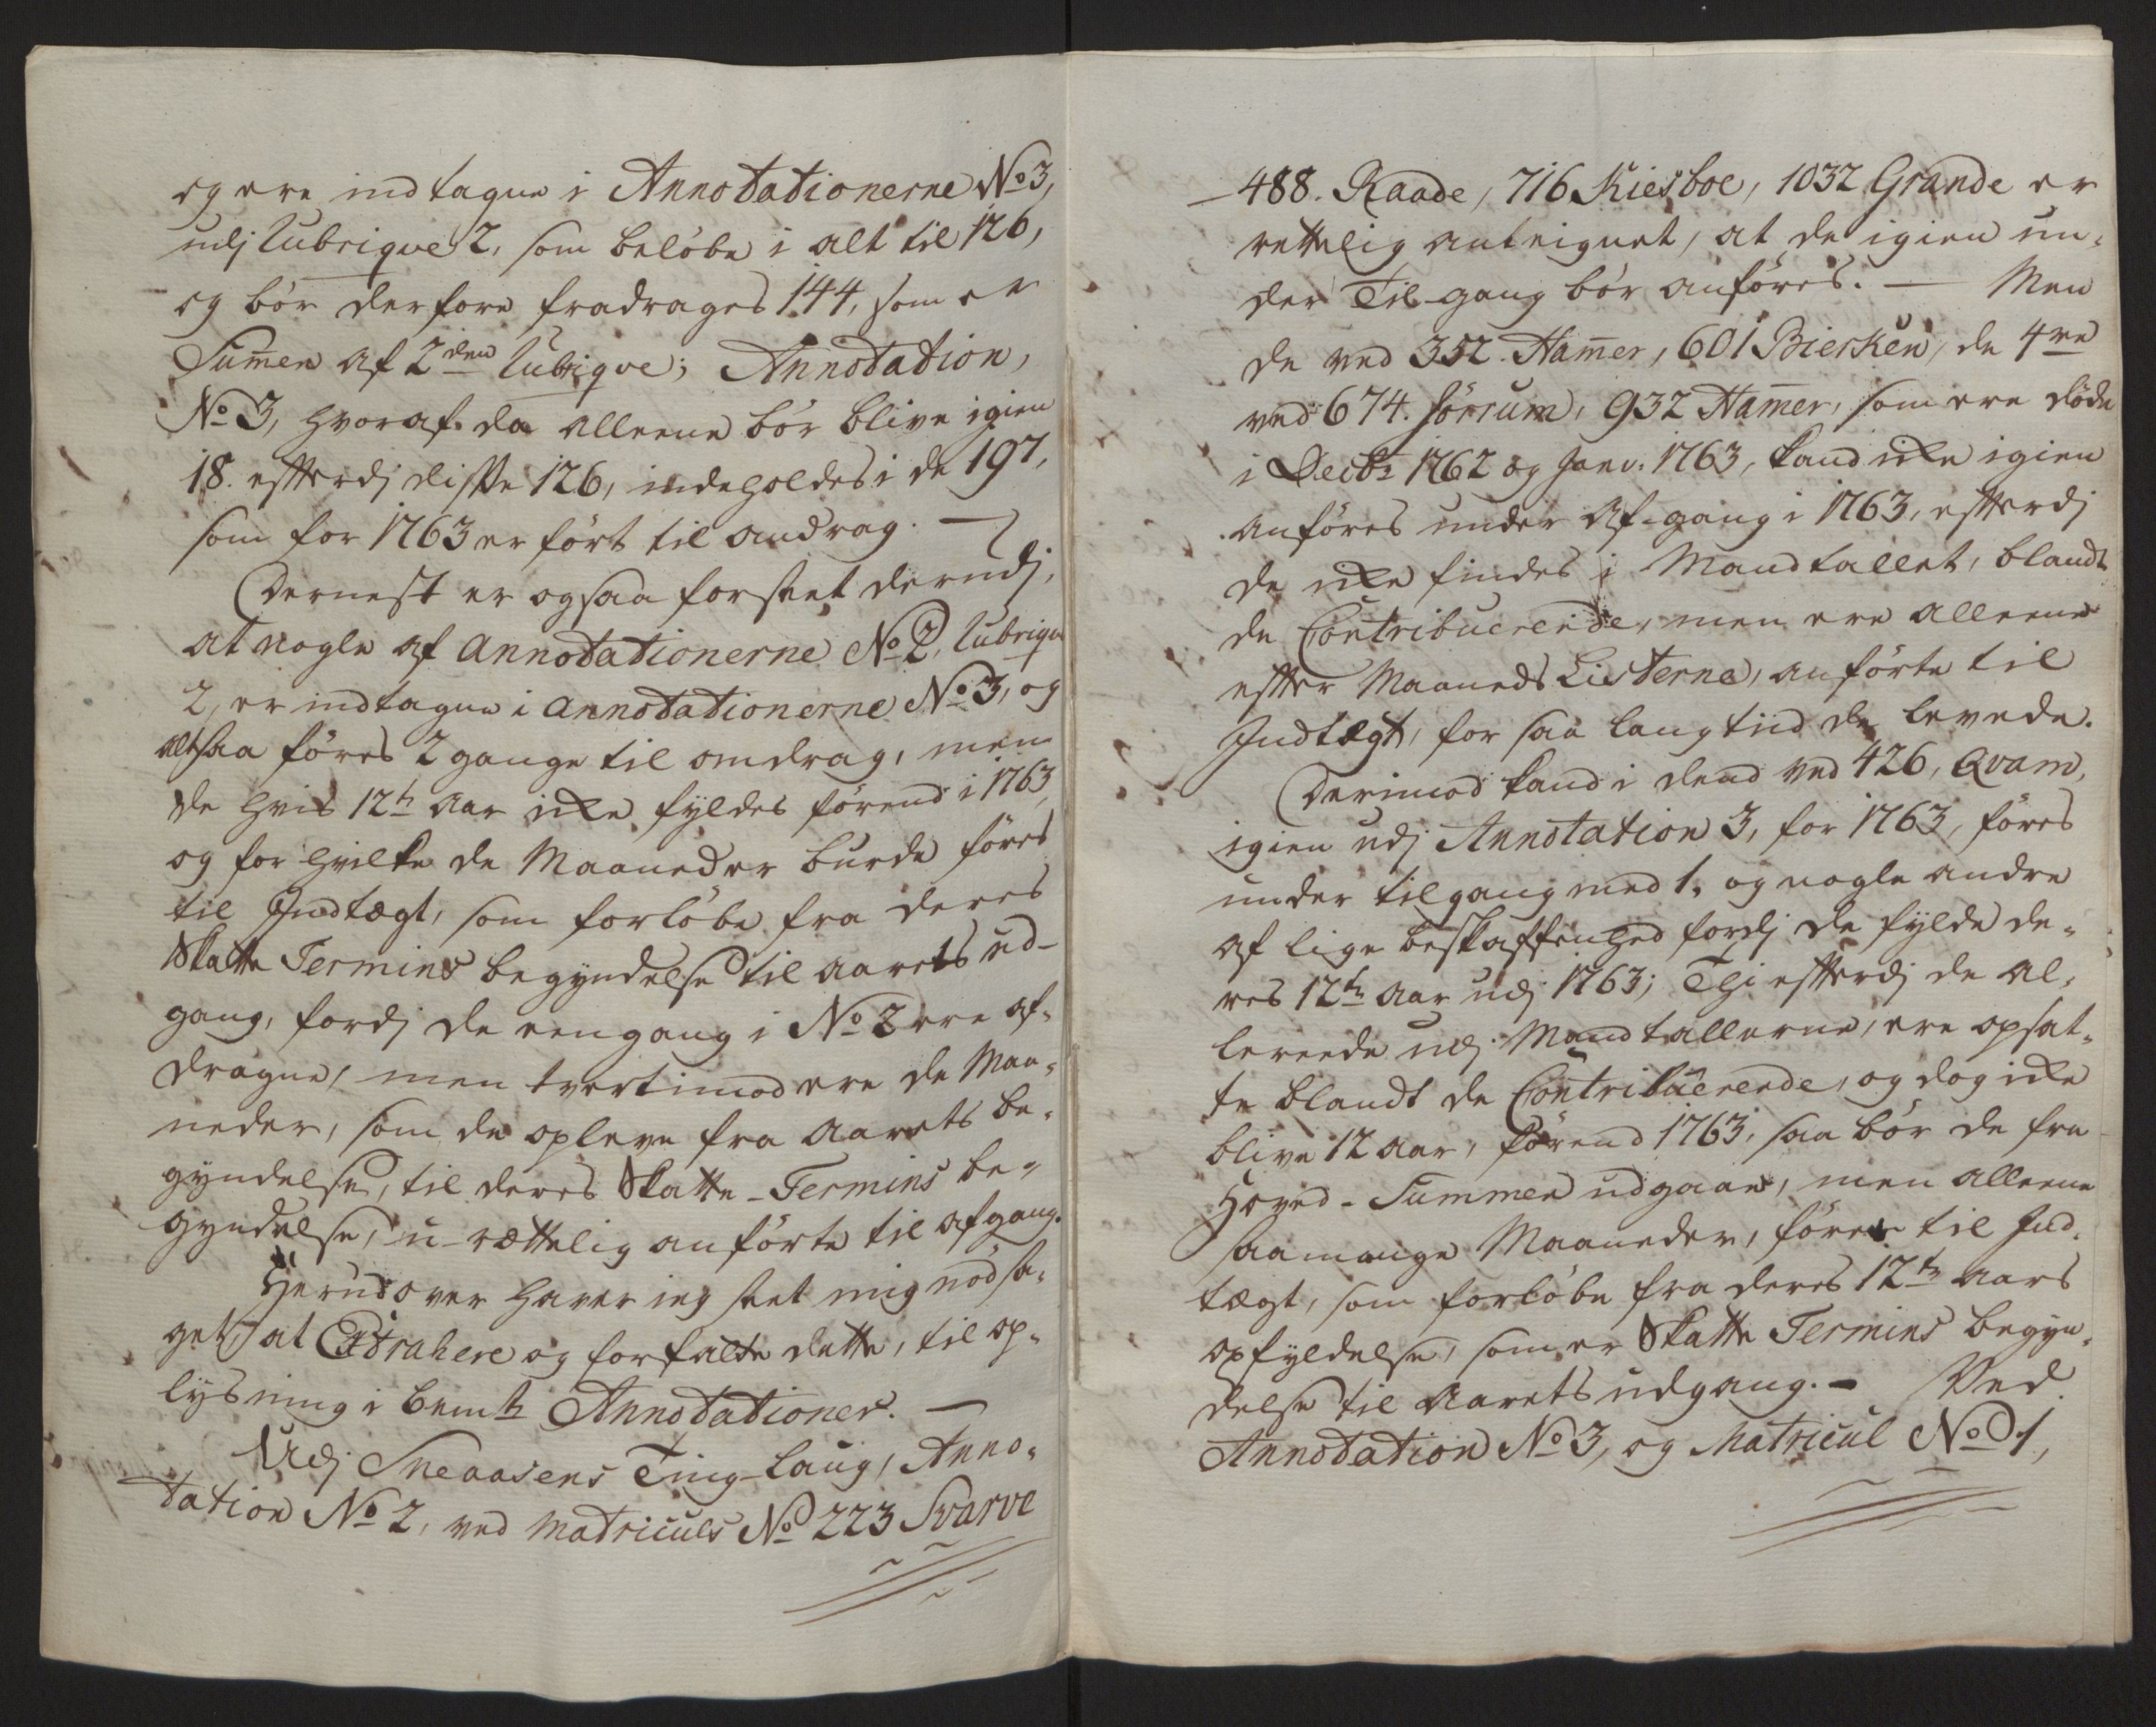 og ere indtagne i Annotationerne No 3,
udj lubriqve 2, som beløbe i alt til 126,
og bør derfore fradrages 144, som er
Sum̅en af 2den lubriqve; Annotation,
No 3, hvoraf da alleene bør blive igien
18. efterdj disse 126, indeholdes i de 197,
som for 1763 er ført til andrag. —
Dernest er ogsaa forseet derudj,
at nogle af Annotationerne No 2, lubriqve
2, er indtagne i Annotationerne No 3, og
altsaa føres 2 gange til omdrag, men
de hvis 12te Aar icke fyldes førend i 1763,
og for hvilke de Maaneder burde føres
til Indtægt, som forløbe fra deres
Skatte Termins begyndelse til aarets ud-
gang, fordj de eengang i No 2 ere af-
dragne, men tvertimod ere de Maa-
neder, som de opleve fra Aarets be-
gyndelse, til deres Skatte-Termins be-
gyndelse, u-rættelig anførte til afgang.
Herudover haver ieg seet mig nødsa-
get, at Extrahere og forfatte dette, til op-
lysning i bemte Annotationer. —
Udj Sneaasens Ting-laug, Anno-
tation No 2, ved Matriculs No 223 Svarve
— 488. Raade, 716 Kiesboe, 1032 Grande er
rettelig anteignet, at de igien un-
der Til-gang bør anføres. — Men
de ved 352. Ham̅er, 601 Bierken, de 4re
ved 674. Sörrum, 932 Ham̅er, som ere døde
i Decbr 1762 og Janv. 1763, kand icke igien
anføres under Af-gang i 1763, efterdj
de icke findes i Mandtallet, blandt
de Contribuerende, men ere alleene
efter Maaneds Listerne, anførte til
Indtægt, for saa lang tiid de levede.
Derimod kand i dend ved 426, Qvam,
igien udj Annotation 3, for 1763, føres
under tilgang med 1, og nogle andre
af lige beskaffenhed fordj de fylde de-
res 12te Aar udj 1763; Thi efterdj de al-
lereede udj Mandtallerne, ere opsat-
te blandt de Contribuerende, og dog icke
blive 12 Aar, førend 1763, saa bør de fra
Hoved-Summen udgaae, men alleene
saamange Maaneder, føres til Ind-
tægt, som forløbe fra deres 12te Aars
opfyldelse, som er Skatte Termins begyn-
delse til Aarets udgang. — Ved
Annotation No 3, og Matricul No 1,